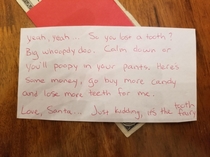 Yeah, yeah... So you lost a tooth?
Big whoopdy deo. Calm down or
You'll poopy in your pants. Here's
some money, go buy more candy
and lose more teeth for me.
Love, Santa. Just kidding, it's the tooth
fairy